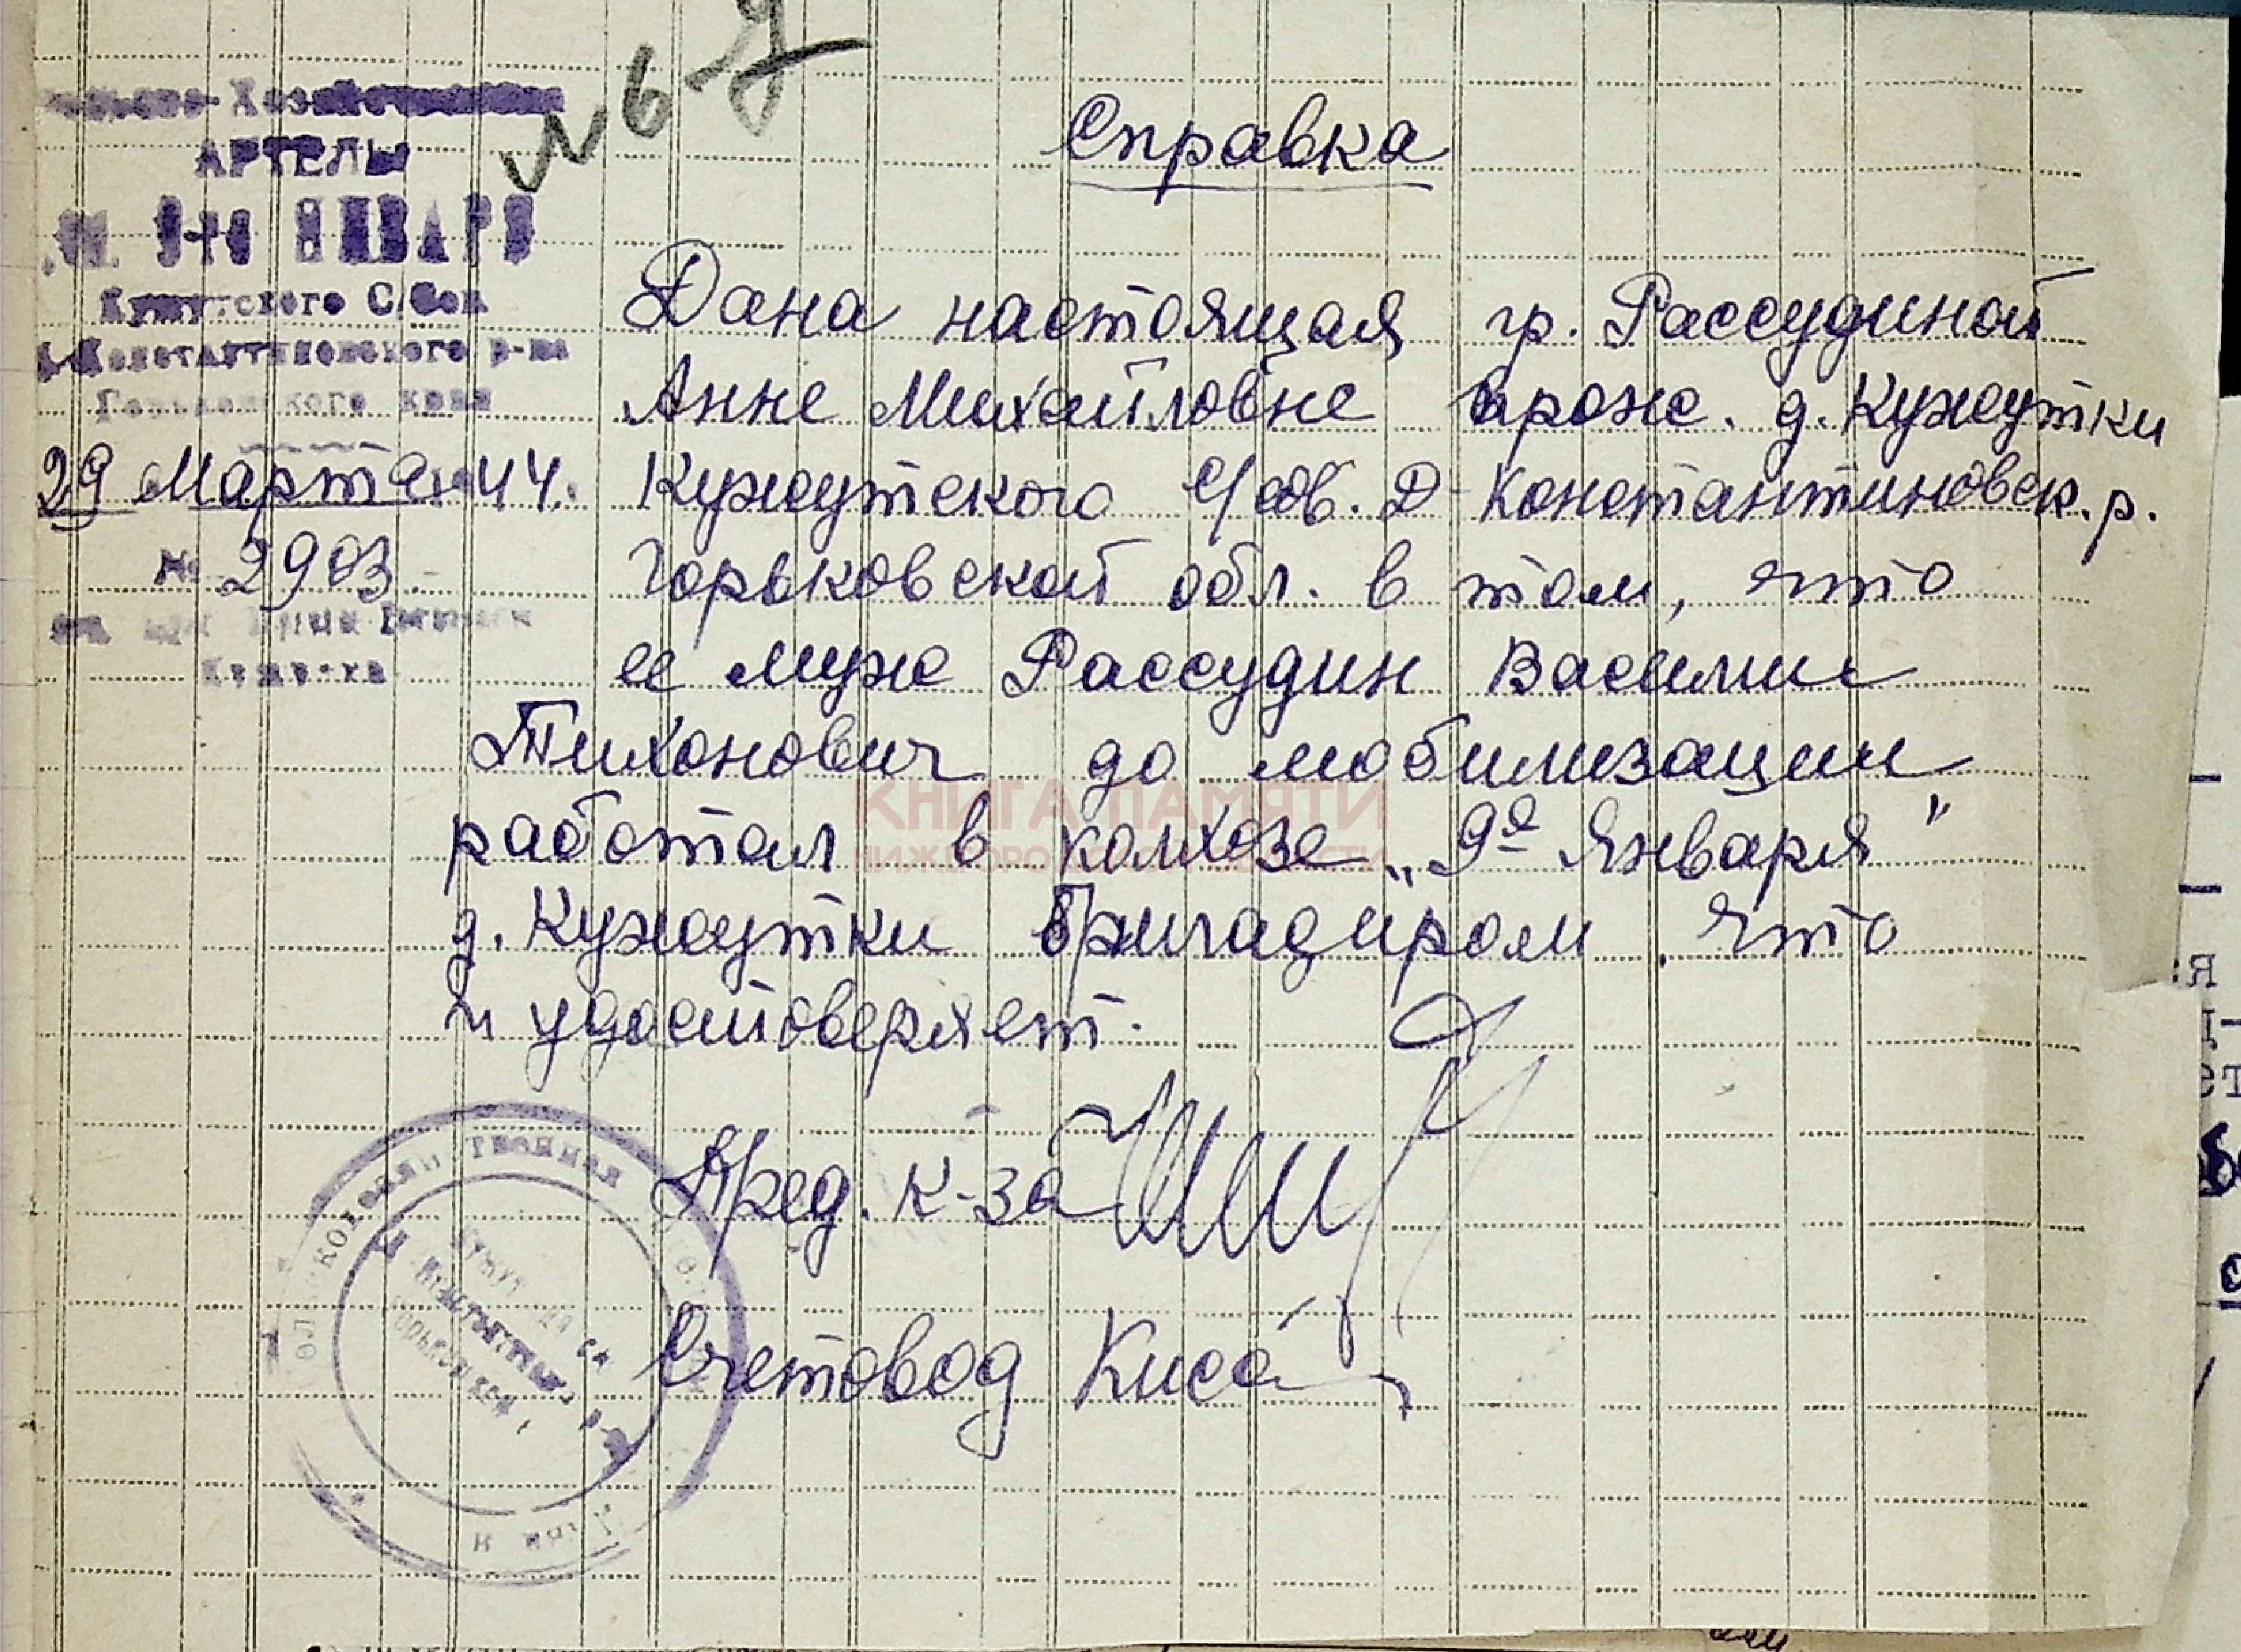 № 6
АРТЕЛЬ
9-го ЯНВАРЯ
С/Сов
Д-Константиновского р-на
Горьковского края
29 Марта 1944.
№ 2903
Справка
Дана настоящая гр. Рассудиной
Анне Михайловне прож. д. Кужутки
Кужутского с/сов. Д-Константиновск. р.
Горьковской обл. в том, что
ее муж Рассудин Василии
Тихонович до мобилизации
работал в колхозе „9го Января"
д. Кужутки бригадиром, что
и удостоверяет.
Пред. к-за
Счетовод
КНИГА ПАМЯТИ
НИЖЕГОРОДСКОЙ ОБЛАСТИ